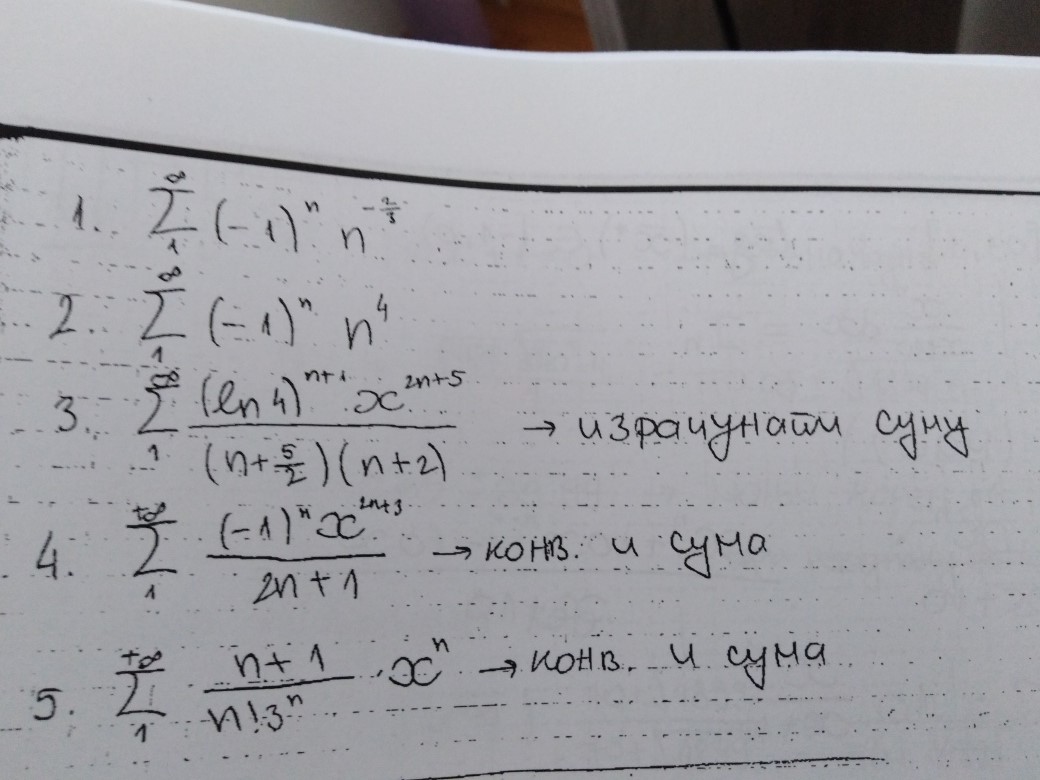 1. ∞ Σ 1 (-1)^n n^(-2/3)
2. ∞ Σ 1 (-1)^n n^4
3. ∞ Σ 1 (ln 4)^(n+1) · x^(2n+5) / (n+5/2)(n+2) → израчунати суму
4. +∞ Σ 1 (-1)^n x^(2n+3) / 2n+1 → конв. и сума
5. +∞ Σ 1 n+1 / n!3^n · x^n → конв. и сума